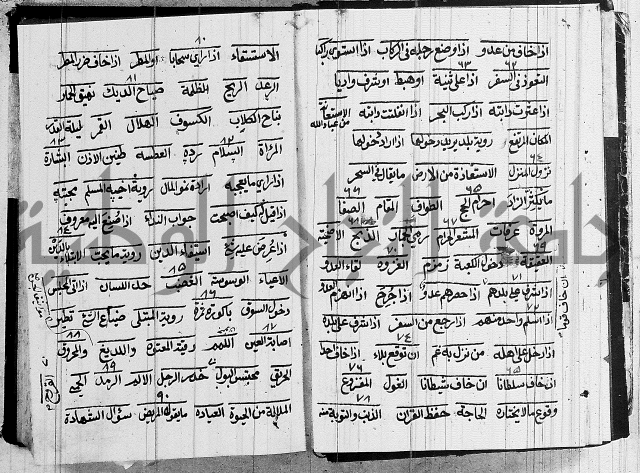 اذا خاف من عدو اذا وضع رجله في الركاب اذا استوى راكبا
٦٢ ٦٣
التعوذ في السفر اذا علي ثنية او هبط او اشرف واديا
اذا عثرت دابته اذا ركب البحر اذا انفلتت دابته الاستعانة من عباد الله
المكان المرتفع روية بلد يريد دخولها اذا اراد دخولها
٦٤
نزول المنزل الاستعاذة من الارض ما يقال في السحر
٦٥ ٦٦
احرام الحج الطواف المقام الصفا
٦٧
المروة عرفات المشعر الحرام رمي الجمار الذبح الاضحية
٦٩
العقيقة دخول الكعبة زمزم الغزوة لقاء العدو
٧١
اذا اشرف على بلدهم اذا حصرهم عدو اذا جرح اذا انهزم العدو
٧٢
اذا اسلم واحد منهم اذا رجع من السفر اذا اشرف على بلده
٧٤
اذا دخل على اهله من نزل به غم ان توقع بلاء اذا خاف احدا
٧٥ ٧٦
ان خاف سلطانا ان خاف شيطانا الغول المفزوع
٧٨
وقوع ما لا يختاره الحاجة حفظ القران الذنب والتوبة منه
ان خاف قوما
٨٠
الاستسقاء اذا راى سحابا او المطر اذا خاف ضرر المطر
٨١
الرعد الريح المظلمة صياح الديك نهيق الحمار
نباح الكلاب الكسوف الهلال القمر ليلة القدر
٨٢ ٨٣
المرآة السلام رده العطسة طنين الاذن البشارة
اذا راى ما يعجبه ارادة نمو المال روية اخيه المسلم محبته
٨٤
اذا قيل له كيف اصبحت جواب النداء اذا صنع اليه معروف
اذا عرض عليه استيفاء الدين روية ما يحب الابتلاء بالدين
٨٥
الاعياء الوسوسة الغضب حد اللسان اذا اتى المجلس
٨٦
دخول السوق باكورة ثمرة روية المبتلى ضياع الشيء
٨٧ ٨٨
اصابة العين اللمم رقية المعتوه واللديغ والمحروق
٨٩
الحريق محتبس البول خدر الرجل الالم الرمد الحمى
٩٠
الملالة من الحيوة العيادة ما يقوله المريض سؤال الشهادة
جامعة النجاح الوطنية